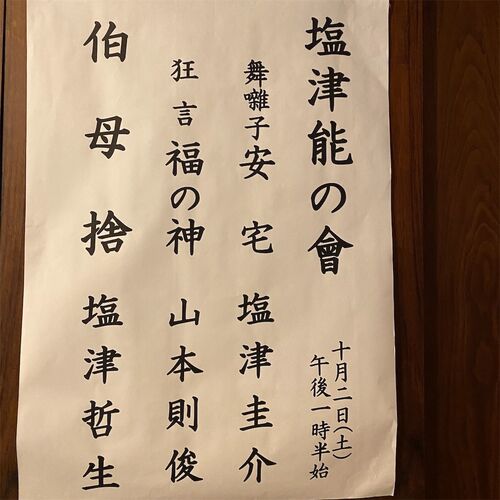 塩津能の會
十月二日(土)
午後一時半始
舞囃子安宅 塩津圭介
狂言福の神 山本則俊
伯母捨 塩津哲生